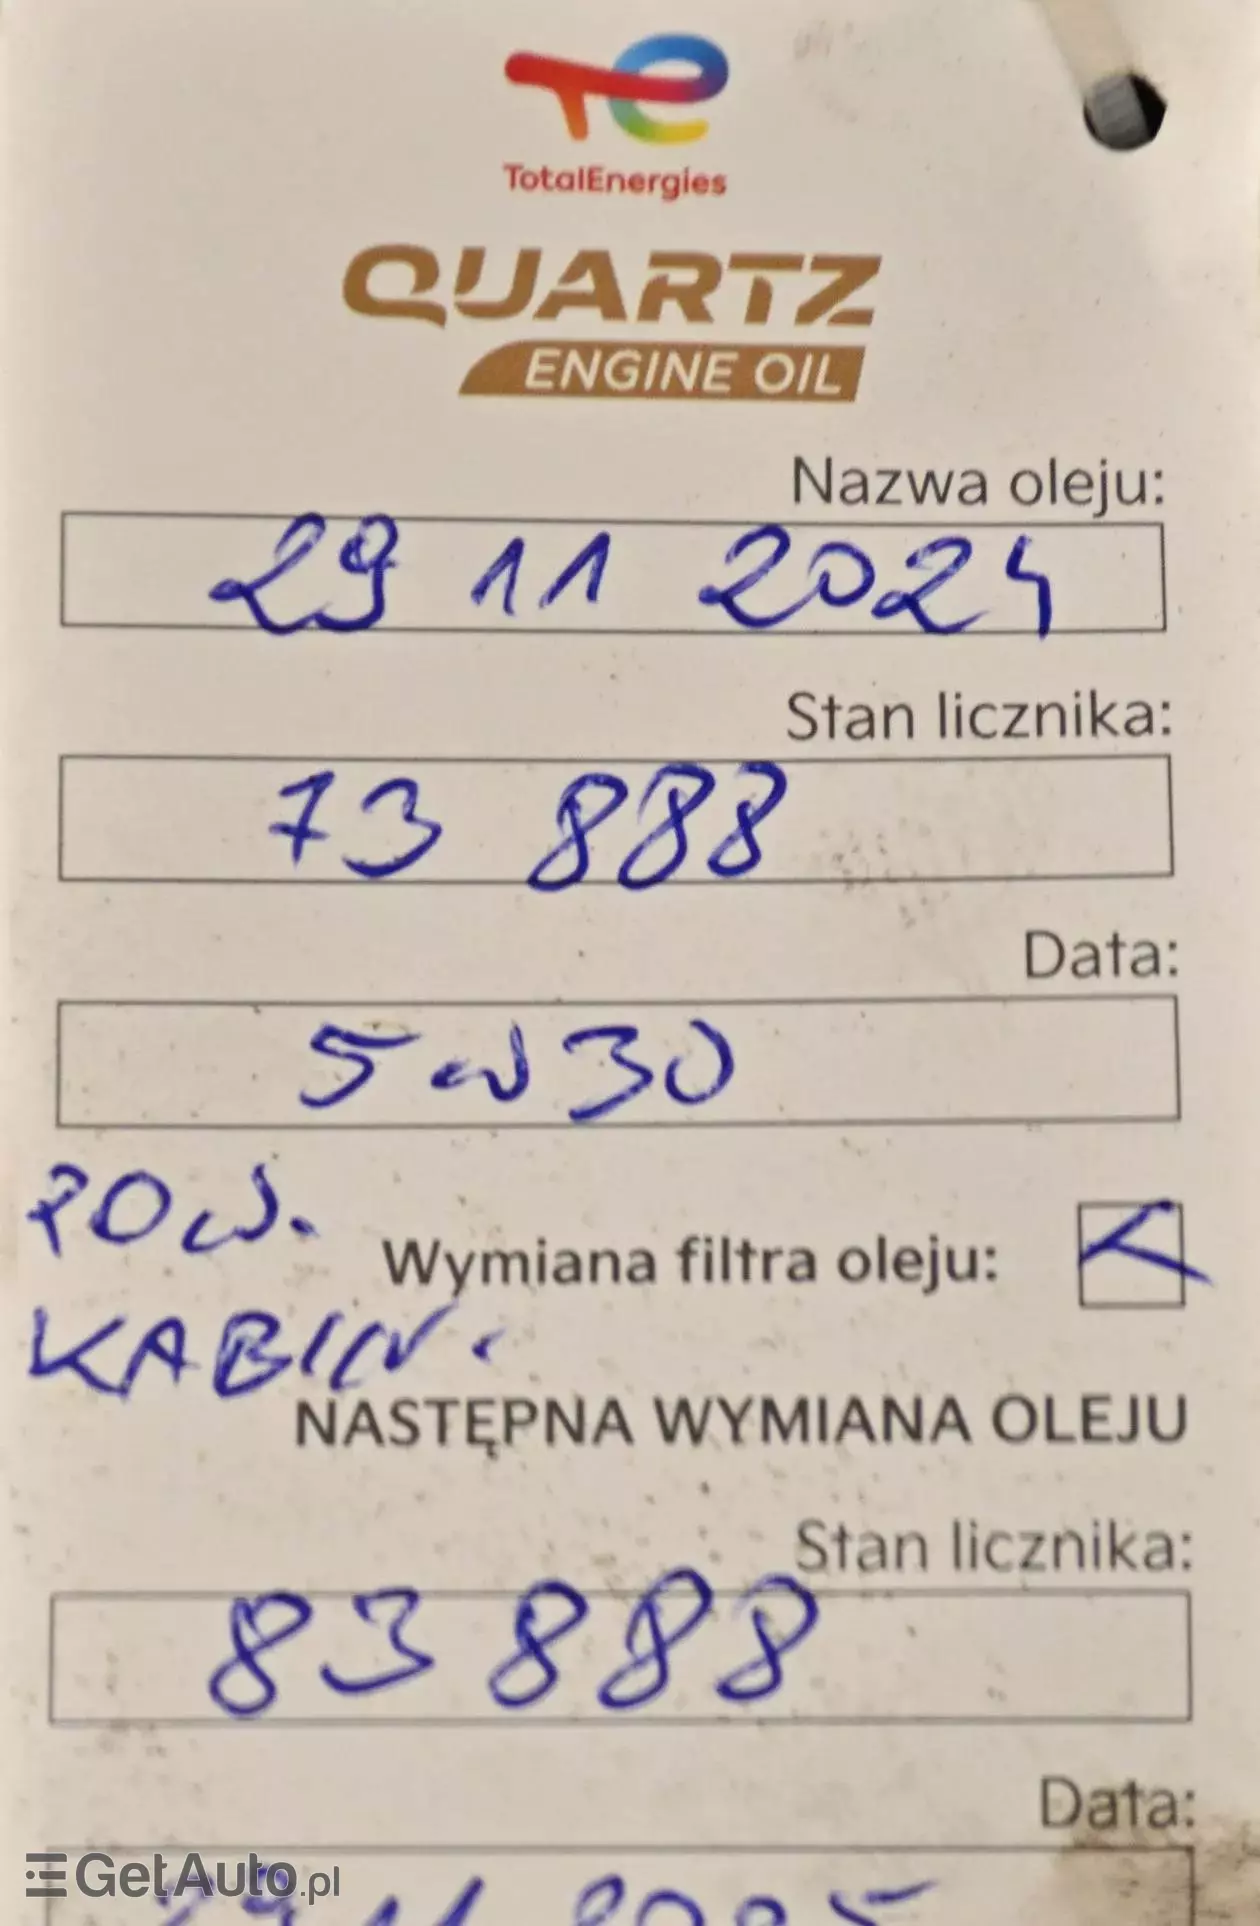 TotalEnergies
QUARTZ
ENGINE OIL
Nazwa oleju:
29 11 2024
Stan licznika:
73 888
Data:
5w30
POW.
Wymiana filtra oleju:
KABIN.
NASTĘPNA WYMIANA OLEJU
Stan licznika:
83888
Data:
29 11 2025
GetAuto.pl